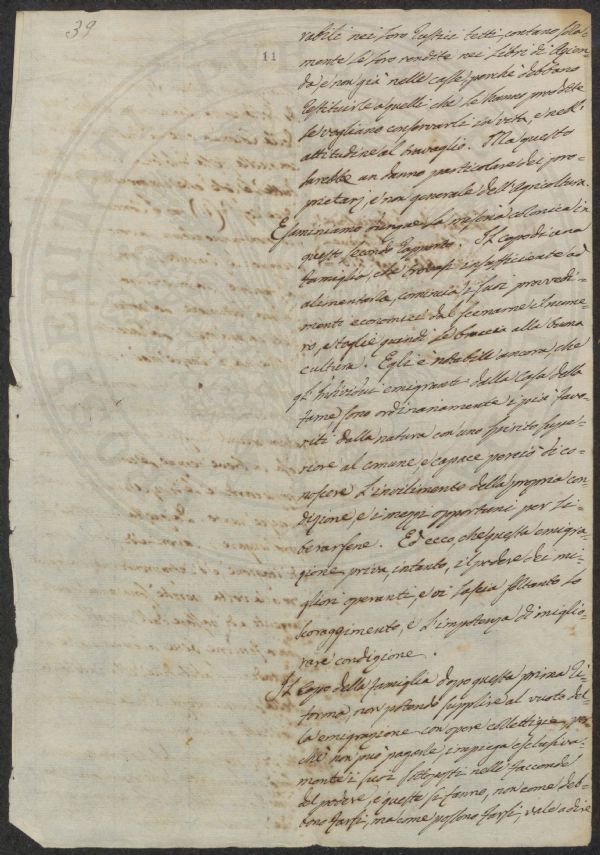 39
11
rabili nei loro rustici tetti, contano sola-
mente le loro rendite nei libri di Azien-
da, e non già nelle casse, perché debbano
restituirle a quelli che le hanno prodotte
se vogliano conservarli in vita, e nell'
attitudine al travaglio. Ma questo
sarebbe un danno particolare dei pro-
prietarj, e non generale dell'Agricoltura.
Esaminiamo dunque la miseria colonica in
questo secondo rapporto. Il capo di una
famiglia, che trovasi insufficiente ad
alimentarla, comincia i suoi provvedi-
menti economici dal scemarne il nume-
ro, e toglie quindi le braccia alla buona
cultura. Egli è notabile ancora che
gl'Individui emigranti dalla Casa della
fame, sono ordinariamente i più favo-
riti dalla natura con uno spirito supe-
riore al comune, e capace perciò di co-
noscere l'invilimento della propria con-
dizione, e i mezzi opportuni per li-
berarsene. Ed ecco, che questa emigra-
zione priva, intanto, il podere dei mi-
gliori operanti, e vi lascia soltanto lo
scoraggimento, e l'impotenza di miglio-
rare condizione.
Il Capo della famiglia dopo questa prima ri-
forma, non potendo supplire al vuoto del-
la emigrazione con opere collettizie, per-
chè non può pagarle, impiega esclusiva-
mente i suoi nelle faccende
del podere, e queste si fanno, non come deb-
bono farsi, ma come possono farsi, vale a dire